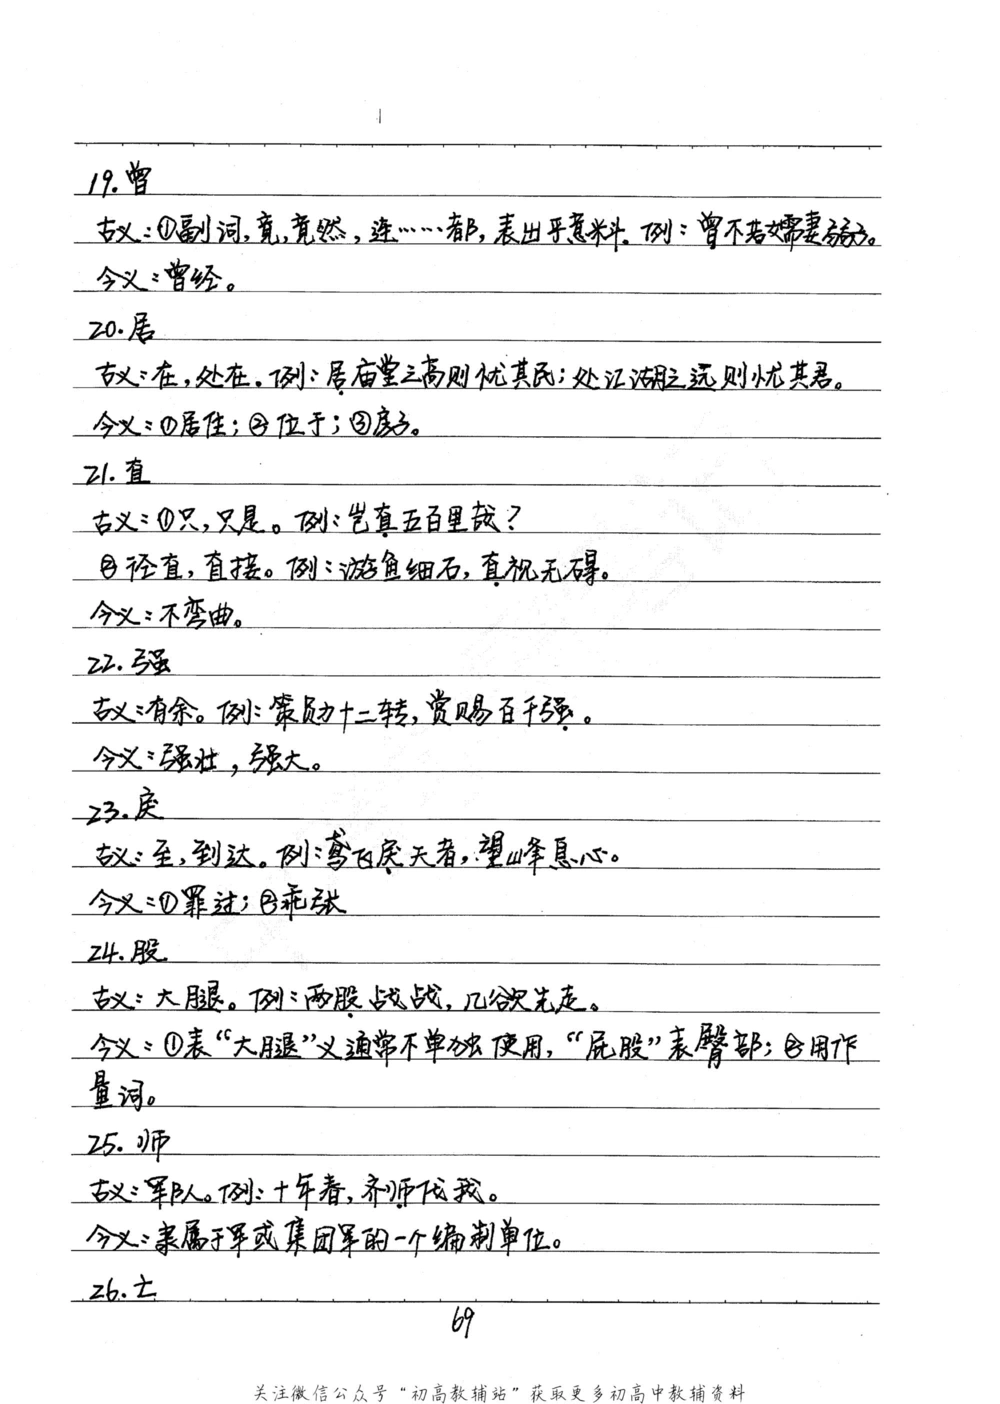 19.曾
古义:①副词,竟,竟然,连……都,表出乎意料。例:曾不若孀妻弱子。
今义:曾经。
20.居
古义:在,处在。例:居庙堂之高则忧其民;处江湖之远则忧其君。
今义:①居住;②位于;③房子。
21.直
古义:①只,只是。例:岂直五百里哉?
②径直,直接。例:游鱼细石,直视无碍。
今义:不弯曲。
22.强
古义:有余。例:策勋十二转,赏赐百千强。
今义:强壮,强大。
23.戾
古义:至,到达。例:鸢飞戾天者,望峰息心。
今义:①罪过;②乖张
24.股
古义:大腿。例:两股战战,几欲先走。
今义:①表“大腿”义通常不单独使用,“屁股”表臀部;②用作
量词。
25.师
古义:军队。例:十年春,齐师伐我。
今义:隶属于军或集团军的一个编制单位。
26.亡
69
关注微信公众号“初高教辅站”获取更多初高中教辅资料